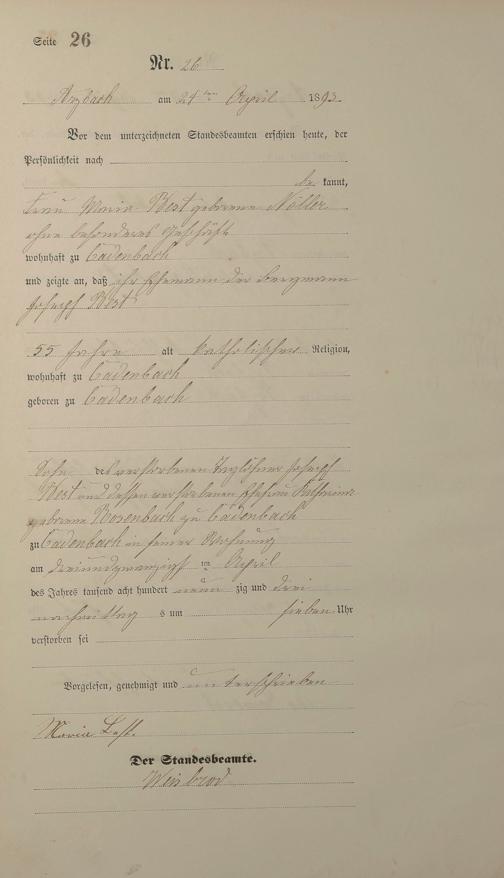 Seite 26
Nr. 26
Arzbach am 24ten April 1893
Vor dem unterzeichneten Standesbeamten erschien heute, der
Persönlichkeit nach
be kannt,
Frau Maria Best geborene Nöller
ohne besonderes Geschäft
wohnhaft zu Cadenbach
und zeigte an, daß ihr Ehemann der Bergmann
Joseph Best
55 Jahre alt katholischer Religion,
wohnhaft zu Cadenbach
geboren zu Cadenbach
Sohn des verstorbenen Taglöhner Joseph
Best und dessen verstorbenen Ehefrau Katharina
geborene Rosenbach zu Cadenbach
zu Cadenbach in seiner Wohnung
am dreiundzwanzigsten April
des Jahres tausend acht hundert neun zig und drei
nachmittag s um sieben Uhr
verstorben sei
Vorgelesen, genehmigt und unterschrieben
Maria Best.
Der Standesbeamte.
Weisbrod